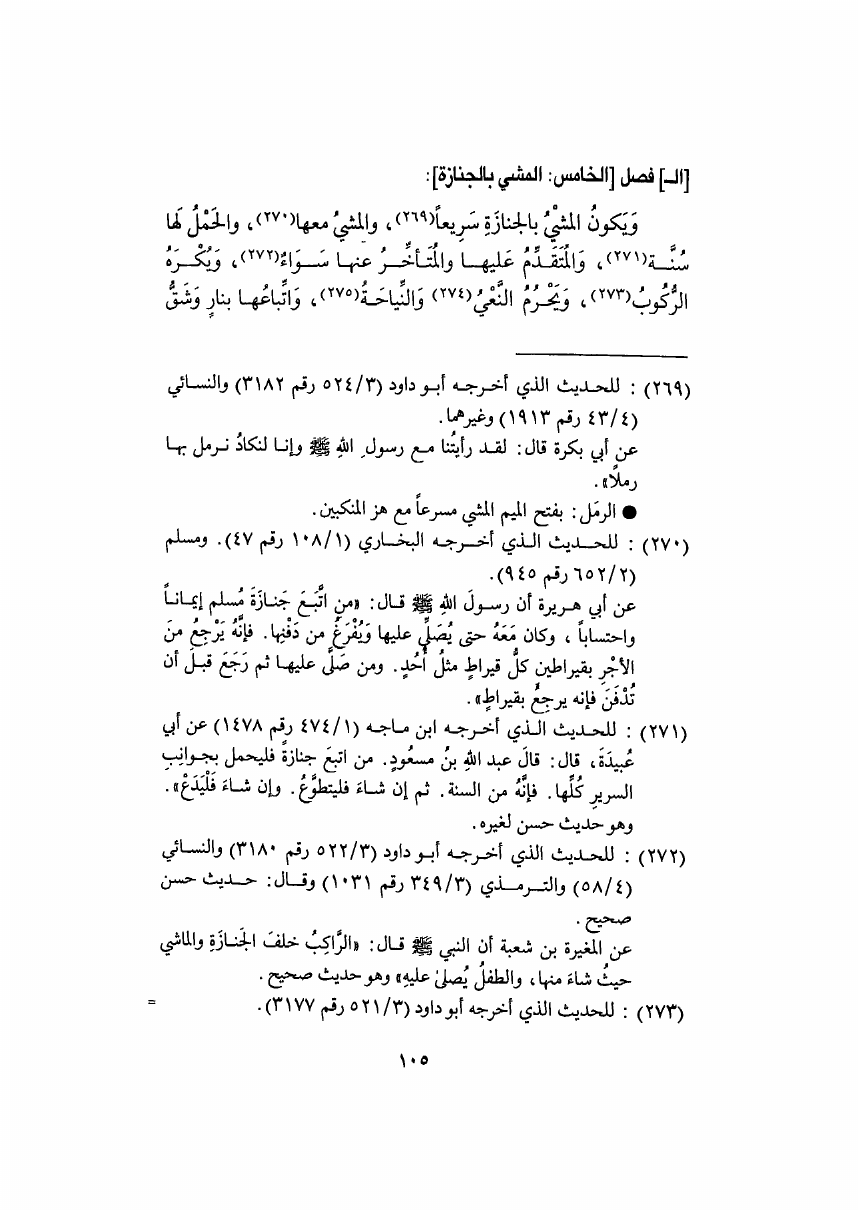 [الـ] فصل [الخامس: المشي بالجنازة]:
وَيَكونُ المشْيُ بالجنازَةِ سَرِيعاً(٢٦٩)، والمشيُ معها(٢٧٠)، والحَمْلُ لَها
سُنَّـــة(٢٧١)، وَالمُتَقَدِّمُ عَليهـا والمُتَأخِّـرُ عنهـا سَـواءٌ(٢٧٢)، وَيُكْـرَهُ
الرُّكُوبُ(٢٧٣)، وَيَحْرُمُ النَّعْيُ(٢٧٤) وَالنِّياحَةُ(٢٧٥)، وَاتِّباعُها بنارٍ وَشَقُّ
(٢٦٩) : للحديث الذي أخرجه أبو داود (٥٢٤/٣ رقم ٣١٨٢) والنسائي
(٤٣/٤ رقم ١٩١٣) وغيرهما.
عن أبي بكرة قال: لقد رأيتُنا مع رسولِ الله ﷺ وإنا لنكادُ نرمل بها
رملًا».
● الرمَل: بفتح الميم المشي مسرعاً مع هز المنكبين.
(٢٧٠) : للحديث الذي أخرجه البخاري (١٠٨/١ رقم ٤٧). ومسلم
(٦٥٢/٢ رقم ٩٤٥).
عن أبي هريرة أن رسولَ اللهِ ﷺ قال: «من اتَّبَعَ جَنازَةَ مُسلم إيماناً
واحتساباً ، وكان مَعَهُ حتى يُصَلِّي عليها وَيُفْرَغُ من دَفْنِها. فإنَّهُ يَرْجِعُ منَ
الأجْرِ بقيراطين كلُّ قيراطٍ مثلُ أُحُدٍ. ومن صَلَّى عليها ثم رَجَعَ قبلَ أن
تُدْفَنَ فإنه يرجعُ بقيراطٍ».
(٢٧١) : للحديث الذي أخرجه ابن ماجه (٤٧٤/١ رقم ١٤٧٨) عن أبي
عُبيدَةَ، قال: قالَ عبد اللهِ بنُ مسعُودٍ. من اتبعَ جنازةً فليحمل بجوانِبِ
السريرِ كُلِّها. فإنَّهُ من السنة. ثم إن شاءَ فليتطوَّعْ. وإن شاءَ فَلْيَدَعْ».
وهو حديث حسن لغيره.
(٢٧٢) : للحديث الذي أخرجه أبو داود (٥٢٢/٣ رقم ٣١٨٠) والنسائي
(٥٨/٤) والترمذي (٣٤٩/٣ رقم ١٠٣١) وقال: حديث حسن
صحيح.
عن المغيرة بن شعبة أن النبي ﷺ قال: «الرَّاكِبُ خلفَ الجَنازَةِ والماشي
حيثُ شاءَ منها، والطفلُ يُصلىٰ عليهِ» وهو حديث صحيح.
(٢٧٣) : للحديث الذي أخرجه أبو داود (٥٢١/٣ رقم ٣١٧٧). =
١٠٥